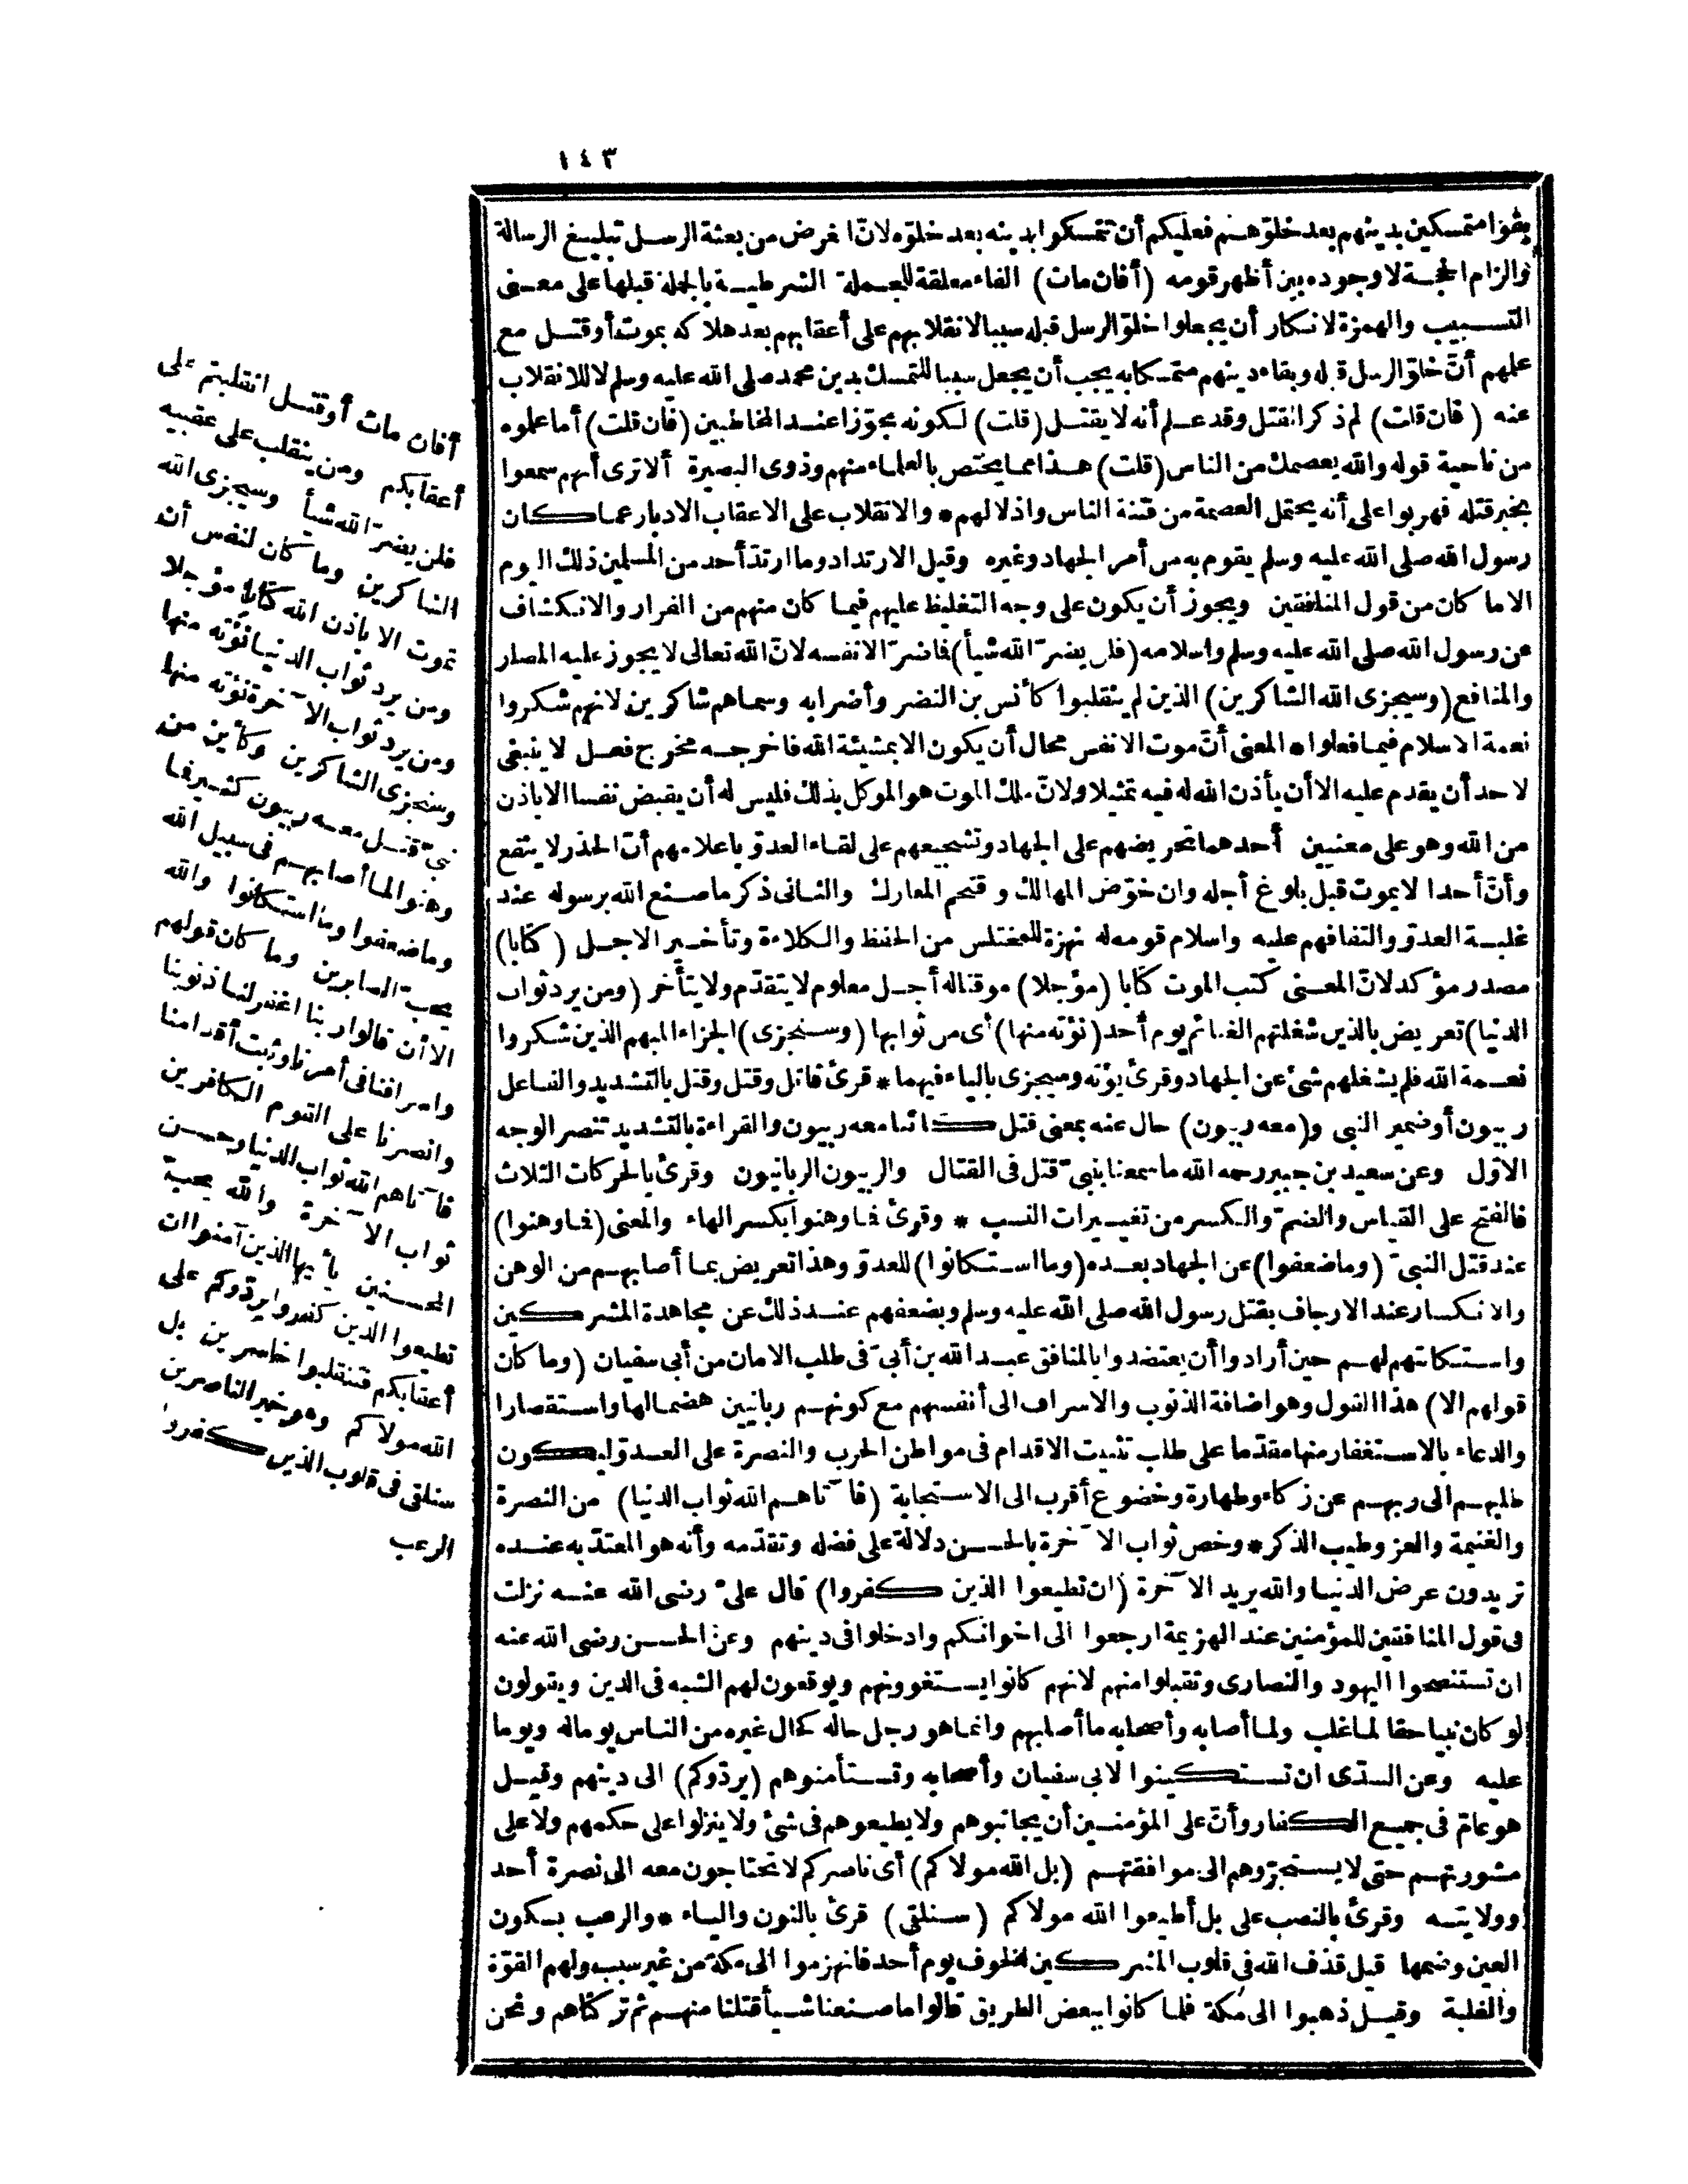 ١٤٣
بقوا متمسكين بدينهم بعد خلوّهم فعليكم أن تتمسكوا بدينه بعد خلوّه لانّ الغرض من بعثة الرسل تبليغ الرسالة
والزام الحجة لا وجوده بين أظهر قومه (أفان مات) الفاء معلقة للجملة الشرطية بالجملة قبلها على معنى
التسبيب والهمزة لانكار أن يجعلوا خلوّ الرسل قبله سببا لانقلابهم على أعقابهم بعد هلاكه بموت أو قتل مع
علمهم أنّ خلوّ الرسل قبله وبقاء دينهم متمسكا به يجب أن يجعل سببا للتمسك بدين محمد صلى الله عليه وسلم لا للانقلاب
عنه (فان قلت) لم ذكر القتل وقد علم أنه لا يقتل (قلت) لكونه مجوّزا عند المخاطبين (فان قلت) أما علموه
من ناحية قوله والله يعصمك من الناس (قلت) هذا مما يختص بالعلماء منهم وذوى البصيرة ألا ترى أنهم سمعوا
بخبر قتله فهربوا على أنه يحتمل العصمة من فتنة الناس واذلالهم * والانقلاب على الاعقاب الادبار عما كان
رسول الله صلى الله عليه وسلم يقوم به من أمر الجهاد وغيره وقيل الارتداد وما ارتدّ أحد من المسلمين ذلك اليوم
الا ما كان من قول المنافقين ويجوز أن يكون على وجه التغليظ عليهم فيما كان منهم من الفرار والانكشاف
عن رسول الله صلى الله عليه وسلم واسلامه (فلن يضرّ الله شيأ) فما ضرّ الا نفسه لانّ الله تعالى لا يجوز عليه المضار
والمنافع (وسيجزى الله الشاكرين) الذين لم ينقلبوا كأنس بن النضر وأضرابه وسماهم شاكرين لانهم شكروا
نعمة الاسلام فيما فعلوا * المعنى أنّ موت الانفس محال أن يكون الا بمشيئة الله فاخرجه مخرج فعل لا ينبغى
لاحد أن يقدم عليه الا أن يأذن الله له فيه تمثيلا ولانّ ملك الموت هو الموكل بذلك فليس له أن يقبض نفسا الا باذن
من الله وهو على معنيين أحدهما تحريضهم على الجهاد وتشجيعهم على لقاء العدوّ باعلامهم أنّ الحذر لا ينفع
وأنّ أحدا لا يموت قبل بلوغ أجله وان خوّض المهالك واقتحم المعارك والثانى ذكر ما صنع الله برسوله عند
غلبة العدوّ والتفافهم عليه واسلام قومه له نهزة للمختلس من الحفظ والكلاءة وتأخير الاجل (كتابا)
مصدر مؤكد لانّ المعنى كتب الموت كتابا (مؤجلا) موقتا له أجل معلوم لا يتقدّم ولا يتأخر (ومن يرد ثواب
الدنيا) تعريض بالذين شغلتهم الغنائم يوم أحد (نؤته منها) أى من ثوابها (وسنجزى) الجزاء المبهم الذين شكروا
نعمة الله فلم يشغلهم شئ عن الجهاد وقرئ يؤته وسيجزى بالياء فيهما * قرئ قاتل وقتل وقتل بالتشديد والفاعل
ربيون أو ضمير النبى و(معه ربيون) حال عنه بمعنى قتل كائنا معه ربيون والقراءة بالتشديد تنصر الوجه
الاوّل وعن سعيد بن جبير رحمه الله ما سمعنا بنبىّ قتل فى القتال والربيون الربانيون وقرئ بالحركات الثلاث
فالفتح على القياس والضمّ والكسر من تغييرات النسب * وقرئ فما وهنوا بكسر الهاء والمعنى (فما وهنوا)
عند قتل النبىّ (وما ضعفوا) عن الجهاد بعده (وما استكانوا) للعدوّ وهذا تعريض بما أصابهم من الوهن
والانكسار عند الارجاف بقتل رسول الله صلى الله عليه وسلم وبضعفهم عند ذلك عن مجاهدة المشركين
واستكانتهم لهم حين أرادوا أن يعتضدوا بالمنافق عبد الله بن أبىّ فى طلب الامان من أبى سفيان (وما كان
قولهم الا) هذا القول وهو اضافة الذنوب والاسراف الى أنفسهم مع كونهم ربانيين هضما لها واستقصارا
والدعاء بالاستغفار منها مقدّما على طلب تثبيت الاقدام فى مواطن الحرب والنصرة على العدوّ ليكون
طلبهم الى ربهم عن زكاء وطهارة وخضوع أقرب الى الاستجابة (فآتاهم الله ثواب الدنيا) من النصرة
والغنيمة والعز وطيب الذكر * وخص ثواب الآخرة بالحسن دلالة على فضله وتقدّمه وأنه هو المعتدّ به عنده
تريدون عرض الدنيا والله يريد الآخرة (ان تطيعوا الذين كفروا) قال علىّ رضى الله عنه نزلت
فى قول المنافقين للمؤمنين عند الهزيمة ارجعوا الى اخوانكم وادخلوا فى دينهم وعن الحسن رضى الله عنه
ان تستنصحوا اليهود والنصارى وتقبلوا منهم لانهم كانوا يستغوونهم ويوقعون لهم الشبه فى الدين ويقولون
لو كان نبيا حقا لما غلب ولما أصابه وأصحابه ما أصابهم وانما هو رجل حاله كحال غيره من الناس يوما له ويوما
عليه وعن السدّى ان تستكينوا لابى سفيان وأصحابه وتستأمنوهم (يردّوكم) الى دينهم وقيل
هو عامّ فى جميع الكفار وأنّ على المؤمنين أن يجانبوهم ولا يطيعوهم فى شئ ولا ينزلوا على حكمهم ولا على
مشورتهم حتى لا يستجرّوهم الى موافقتهم (بل الله مولاكم) أى ناصركم لا تحتاجون معه الى نصرة أحد
وولايته وقرئ بالنصب على بل أطيعوا الله مولاكم (سنلقى) قرئ بالنون والياء * والرعب بسكون
العين وضمها قيل قذف الله فى قلوب المشركين الخوف يوم أحد فانهزموا الى مكة من غير سبب ولهم القوّة
والغلبة وقيل ذهبوا الى مكة فلما كانوا ببعض الطريق قالوا ما صنعنا شيأ قتلنا منهم ثم تركناهم ونحن
أفان مات أو قتل انقلبتم على
أعقابكم ومن ينقلب على عقبيه
فلن يضرّ الله شيأ وسيجزى الله
الشاكرين وما كان لنفس أن
تموت الا باذن الله كتابا مؤجلا
ومن يرد ثواب الدنيا نؤته منها
ومن يرد ثواب الآخرة نؤته منها
وسنجزى الشاكرين وكأين من
نبىّ قتل معه ربيون كثير فما
وهنوا لما أصابهم فى سبيل الله
وما ضعفوا وما استكانوا والله
يحبّ الصابرين وما كان قولهم
الا أن قالوا ربنا اغفر لنا ذنوبنا
واسرافنا فى أمرنا وثبت أقدامنا
وانصرنا على القوم الكافرين
فآتاهم الله ثواب الدنيا وحسن
ثواب الآخرة والله يحبّ
المحسنين يأيها الذين آمنوا ان
تطيعوا الذين كفروا يردّوكم على
أعقابكم فتنقلبوا خاسرين بل
الله مولاكم وهو خير الناصرين
سنلقى فى قلوب الذين كفروا
الرعب